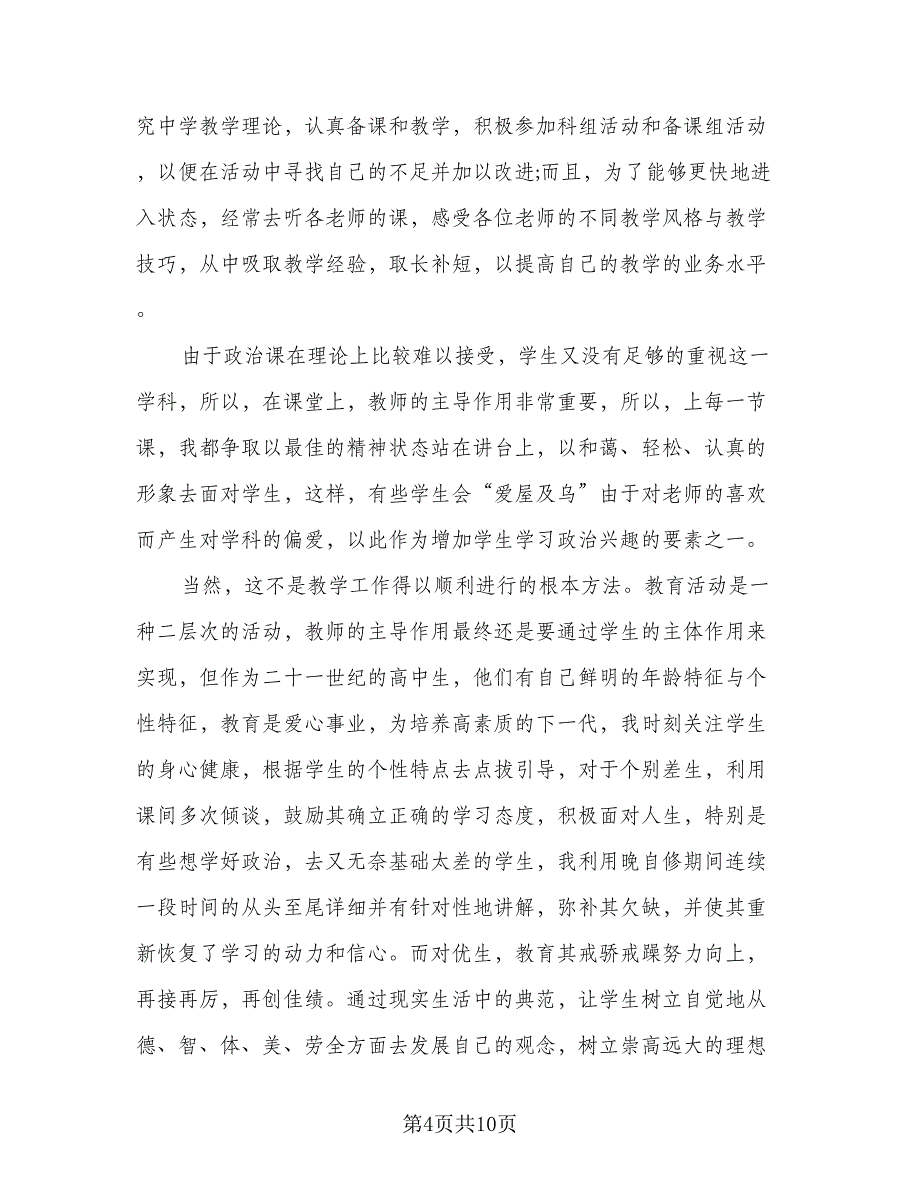 究中学教学理论，认真备课和教学，积极参加科组活动和备课组活动
，以便在活动中寻找自己的不足并加以改进;而且，为了能够更快地进
入状态，经常去听各老师的课，感受各位老师的不同教学风格与教学
技巧，从中吸取教学经验，取长补短，以提高自己的教学的业务水平
。
由于政治课在理论上比较难以接受，学生又没有足够的重视这一
学科，所以，在课堂上，教师的主导作用非常重要，所以，上每一节
课，我都争取以最佳的精神状态站在讲台上，以和蔼、轻松、认真的
形象去面对学生，这样，有些学生会“爱屋及乌”由于对老师的喜欢
而产生对学科的偏爱，以此作为增加学生学习政治兴趣的要素之一。
当然，这不是教学工作得以顺利进行的根本方法。教育活动是一
种二层次的活动，教师的主导作用最终还是要通过学生的主体作用来
实现，但作为二十一世纪的高中生，他们有自己鲜明的年龄特征与个
性特征，教育是爱心事业，为培养高素质的下一代，我时刻关注学生
的身心健康，根据学生的个性特点去点拔引导，对于个别差生，利用
课间多次倾谈，鼓励其确立正确的学习态度，积极面对人生，特别是
有些想学好政治，去又无奈基础太差的学生，我利用晚自修期间连续
一段时间的从头至尾详细并有针对性地讲解，弥补其欠缺，并使其重
新恢复了学习的动力和信心。而对优生，教育其戒骄戒躁努力向上，
再接再厉，再创佳绩。通过现实生活中的典范，让学生树立自觉地从
德、智、体、美、劳全方面去发展自己的观念，树立崇高远大的理想
第4页共10页